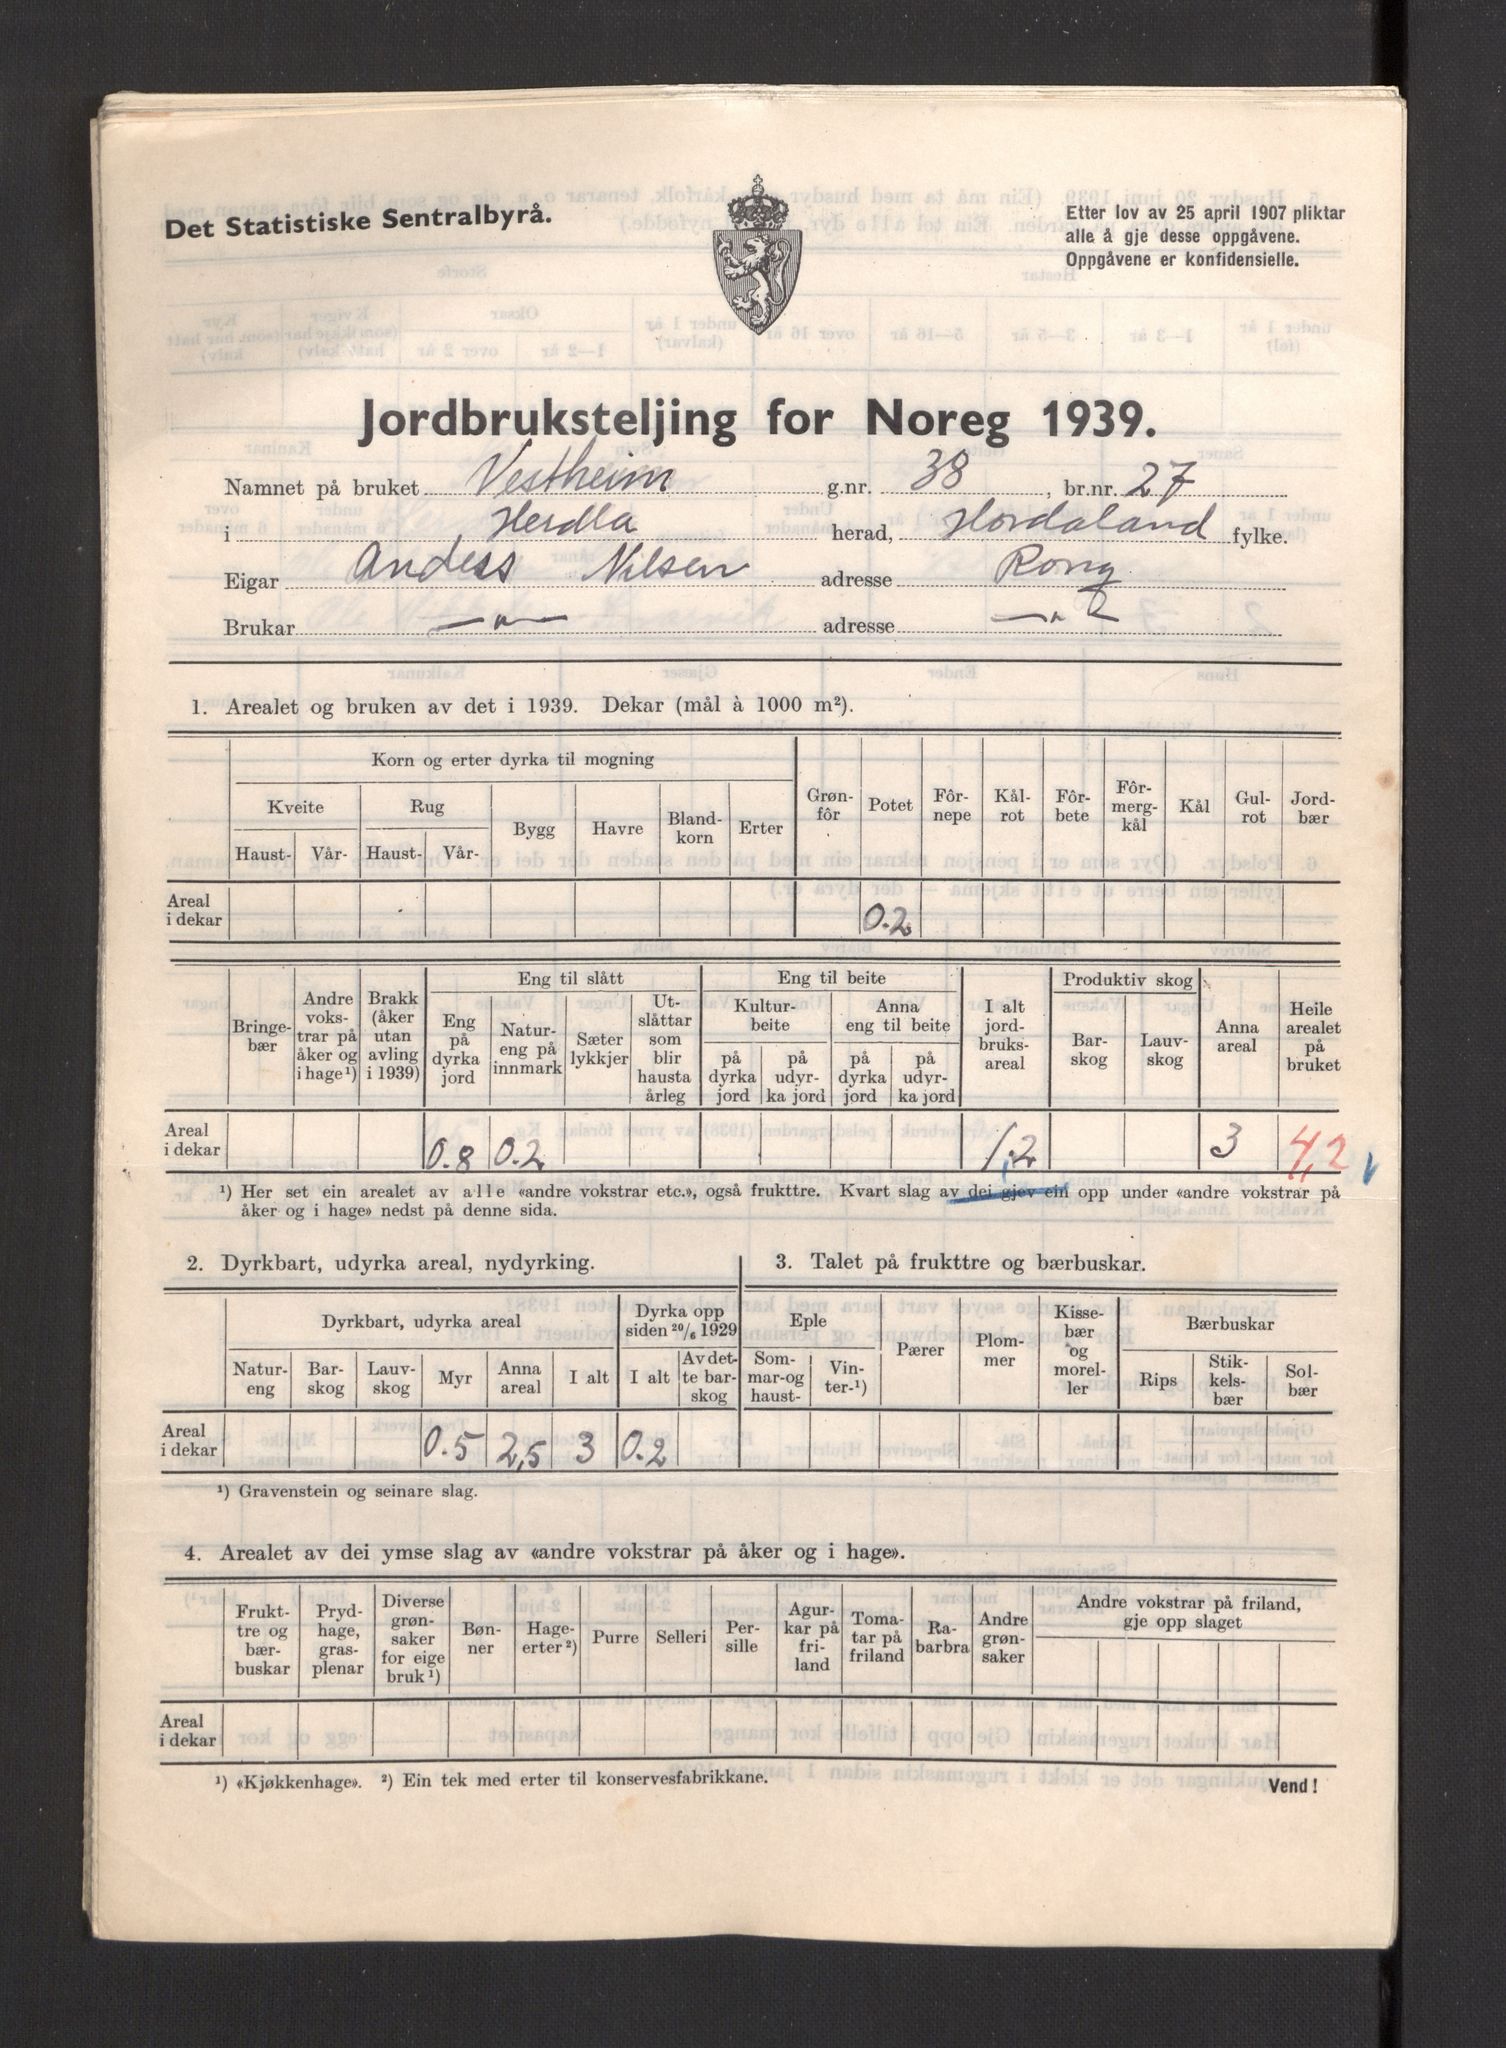 Det Statistiske Sentralbyrå.
Etter lov av 25 april 1907 pliktar
alle å gje desse oppgåvene.
Oppgåvene er konfidensielle.
Jordbruksteljing for Noreg 1939.
Namnet på bruket Vestheim g.nr. 38, br.nr. 27
i Herdla herad, Hordaland fylke.
Eigar Anders Nilsen adresse Rong
Brukar —„— adresse —„—
1. Arealet og bruken av det i 1939. Dekar (mål à 1000 m²).
Korn og erter dyrka til mogning
Kveite Rug Bygg Havre Blandkorn Erter Grønfôr Potet Fôrnepe Kålrot Fôrbete Fôrmergkål Kål Gulrot Jordbær
Haust- Vår- Haust- Vår-
Areal i dekar 0.2
Eng til slått Eng til beite Produktiv skog
Bringebær Andre vokstrar på åker og i hage¹) Brakk (åker utan avling i 1939) Eng på dyrka jord Natureng på innmark Sæterlykkjer Utslåttar som blir hausta årleg Kulturbeite Anna eng til beite I alt jordbruksareal Barskog Lauvskog Anna areal Heile arealet på bruket
på dyrka jord på udyrka jord på dyrka jord på udyrka jord
Areal i dekar 0.8 0.2 1,2 3 4,2
¹) Her set ein arealet av alle «andre vokstrar etc.», også frukttre. Kvart slag av dei gjev ein opp under «andre vokstrar på
åker og i hage» nedst på denne sida.
2. Dyrkbart, udyrka areal, nydyrking.
3. Talet på frukttre og bærbuskar.
Dyrkbart, udyrka areal Dyrka opp siden 20/6 1929 Eple Pærer Plommer Kissebær og moreller Bærbuskar
Natureng Barskog Lauvskog Myr Anna areal I alt I alt Av dette barskog Sommar- og haust- Vinter-¹) Rips Stikkelsbær Solbær
Areal i dekar 0.5 2,5 3 0.2
¹) Gravenstein og seinare slag.
4. Arealet av dei ymse slag av «andre vokstrar på åker og i hage».
Frukttre og bærbuskar Prydhage, grasplenar Diverse grønsaker for eige bruk¹) Bønner Hageerter²) Purre Selleri Persille Agurkar på friland Tomatar på friland Rabarbra Andre grønsaker Andre vokstrar på friland, gje opp slaget
Areal i dekar
¹) «Kjøkkenhage». ²) Ein tek med erter til konservesfabrikkane.
Vend!